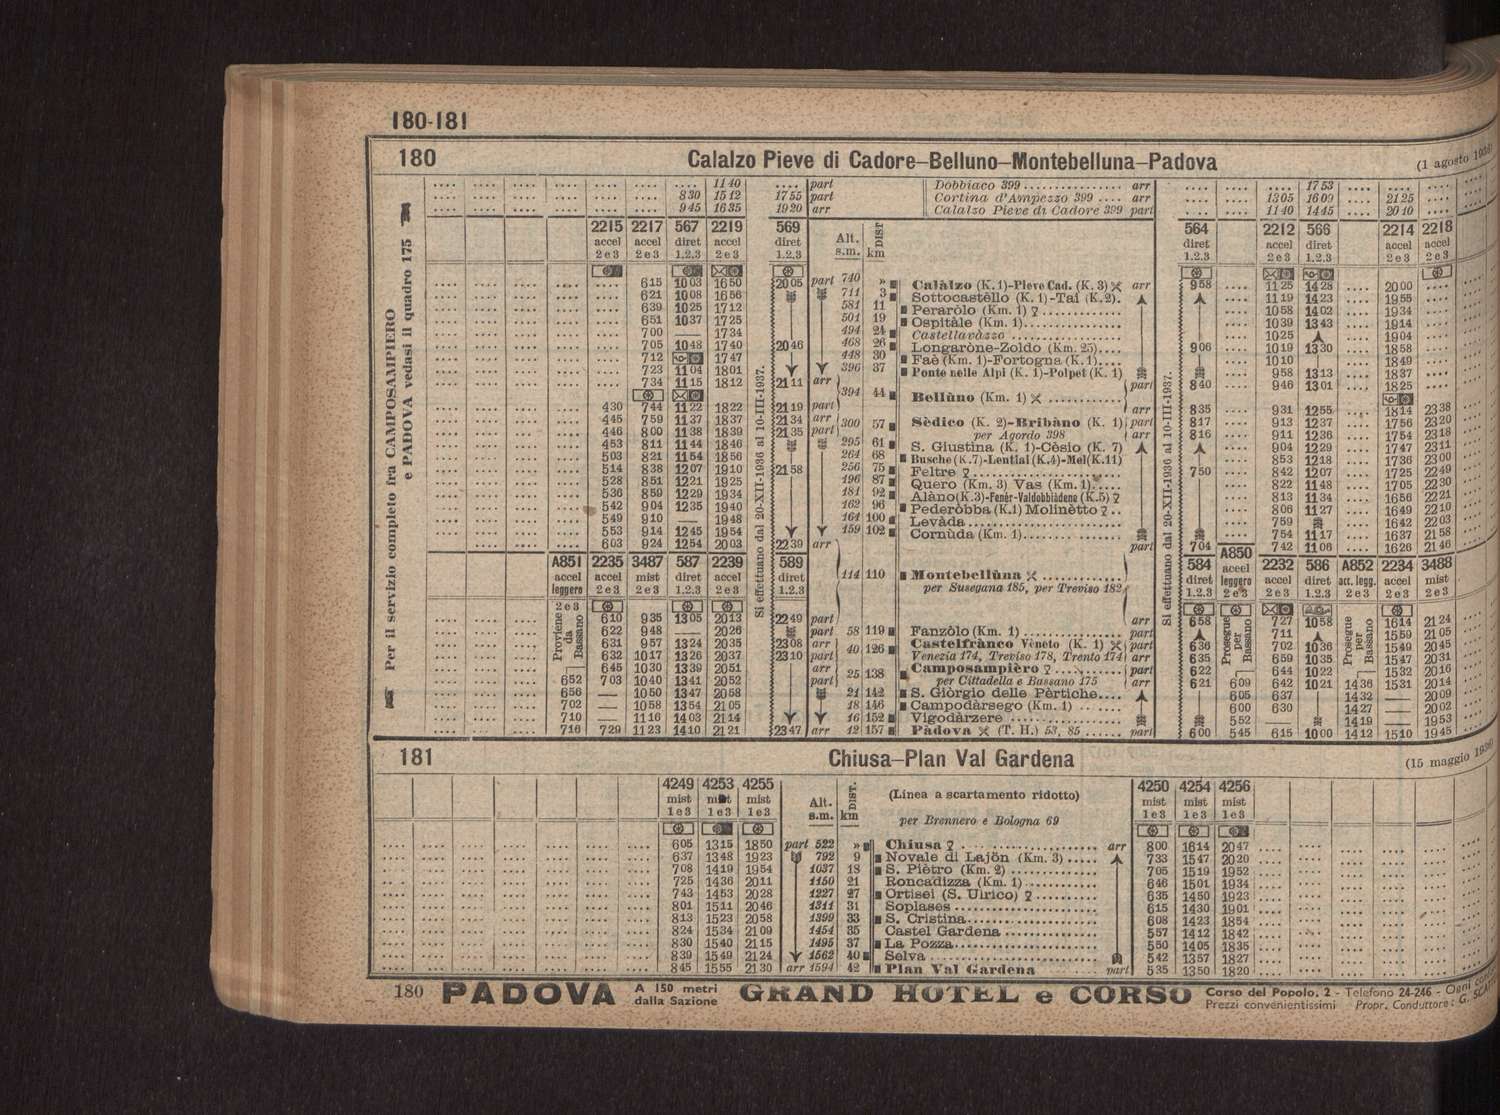 180-181
180 Calalzo Pieve di Cadore–Belluno–Montebelluna–Padova (1 agosto 1936)
Per il servizio completo fra CAMPOSAMPIERO
e PADOVA vedasi il quadro 175
.... 1140 .... part Dobbiaco 399 arr .... 1753 ....
830 1512 1755 part Cortina d'Ampezzo 399 arr 1305 1609 2125
945 1635 1920 arr Calalzo Pieve di Cadore 399 part 1140 1445 2010
2215 2217 567 2219 569 Alt. DIST 564 2212 566 2214 2218
accel accel diret accel diret s.m. km diret accel diret accel accel
2 e 3 2 e 3 1.2.3 2 e 3 1.2.3 1.2.3 2 e 3 1.2.3 2 e 3 2 e 3
615 1003 1650 2005 part 740 » Calàlzo (K. 1)-Pieve Cad. (K. 3) arr 958 1125 1428 2000
621 1008 1656 711 3 Sottocastèllo (K. 1)-Tai (K.2). 1119 1423 1955
639 1025 1712 581 11 Peraròlo (Km. 1) 1058 1402 1934
651 1037 1725 501 19 Ospitàle (Km. 1) 1039 1343 1914
700 — 1734 494 24 Castellavàzzo 1025 1904
705 1048 1740 2046 468 26 Longaròne-Zoldo (Km. 25) 906 1019 1330 1858
712 1747 448 30 Faè (Km. 1)-Fortogna (K. 1) 1010 1849
723 1104 1801 396 37 Ponte nelle Alpi (K. 1)-Polpet (K. 1) 958 1313 1837
734 1115 1812 2111 arr 394 44 Bellùno (Km. 1) part 840 946 1301 1825
430 744 1122 1822 2119 part arr 835 931 1255 1814 2338
445 759 1137 1837 2134 arr 300 57 Sèdico (K. 2)-Bribàno (K. 1) part 817 913 1237 1756 2320
446 800 1138 1839 2135 part per Agordo 398 arr 816 911 1236 1754 2318
453 811 1144 1846 295 61 S. Giustina (K. 1)-Cèsio (K. 7) 904 1229 1747 2311
503 821 1154 1856 264 68 Busche (K.7)-Lentiai (K.4)-Mel(K.11) 853 1218 1736 2300
514 838 1207 1910 2158 256 75 Feltre 750 842 1207 1725 2249
528 851 1221 1925 196 87 Quero (Km. 3) Vas (Km. 1) 822 1148 1705 2230
536 859 1229 1934 181 92 Alàno(K.3)-Fenèr-Valdobbiàdene (K.5) 813 1134 1656 2221
542 904 1235 1940 162 96 Pederòbba (K.1) Molinètto 806 1127 1649 2210
549 910 — 1948 164 100 Levàda 759 1642 2203
553 914 1245 1954 159 102 Cornùda (Km. 1) 754 1117 1637 2158
603 924 1254 2003 2239 arr part 704 742 1106 1626 2146
Si effettuano dal 20-XII-1936 al 10-III-1937.
Si effettuano dal 20-XII-1936 al 10-III-1937.
A851 2235 3487 587 2239 589 114 110 Montebellùna 584 A850 2232 586 A852 2234 3488
accel accel mist diret accel diret per Susegana 185, per Treviso 182 diret accel accel diret acc. legg. accel mist
leggero 2 e 3 2 e 3 1.2.3 2 e 3 1.2.3 1.2.3 leggero 2 e 3 1.2.3 2 e 3 2 e 3 2 e 3
2 e 3 2 e 3
Proviene da Bassano
Prosegue per Bassano
Prosegue per Bassano
610 935 1305 2013 2249 part arr 658 727 1058 1614 2124
622 948 — 2026 part 58 119 Fanzòlo (Km. 1) part 711 1559 2105
631 957 1324 2035 2308 arr 40 126 Castelfrànco Vèneto (K. 1) part 636 702 1036 1549 2045
632 1017 1326 2037 2310 part Venezia 174, Treviso 178, Trento 174 arr 635 659 1035 1547 2031
645 1030 1339 2051 arr 25 138 Camposampièro part 622 644 1022 1532 2016
652 703 1040 1341 2052 part per Cittadella e Bassano 175 arr 621 609 642 1021 1436 1531 2014
656 — 1050 1347 2058 21 142 S. Giòrgio delle Pèrtiche 605 637 1432 — 2009
702 — 1058 1354 2105 18 146 Campodàrsego (Km. 1) 600 630 1427 — 2002
710 — 1116 1403 2114 16 152 Vigodàrzere 552 — 1419 — 1953
716 729 1123 1410 2121 2347 arr 12 157 Pàdova (T. H.) 53, 85 part 600 545 615 1000 1412 1510 1945
181 Chiusa–Plan Val Gardena (15 maggio 1936)
4249 4253 4255 Alt. DIST. (Linea a scartamento ridotto) 4250 4254 4256
mist mist mist s.m. km mist mist mist
1 e 3 1 e 3 1 e 3 per Brennero e Bologna 69 1 e 3 1 e 3 1 e 3
605 1315 1850 part 522 » Chiusa arr 800 1614 2047
637 1348 1923 792 9 Novale di Lajön (Km. 3) 733 1547 2020
708 1419 1954 1037 18 S. Piètro (Km. 2) 705 1519 1952
725 1436 2011 1150 21 Roncadizza (Km. 1) 646 1501 1934
743 1453 2028 1227 27 Ortisei (S. Ulrico) 635 1450 1923
801 1511 2046 1311 31 Soplases 615 1430 1901
813 1523 2058 1399 33 S. Cristina 608 1423 1854
824 1534 2109 1454 35 Castel Gardena 557 1412 1842
830 1540 2115 1495 37 La Pozza 550 1405 1835
839 1549 2124 1562 40 Selva 542 1357 1827
845 1555 2130 arr 1594 42 Plan Val Gardena part 535 1350 1820
180 PADOVA A 150 metri dalla Stazione GRAND HOTEL e CORSO Corso del Popolo, 2 - Telefono 24-246 - Ogni
Prezzi convenientissimi Propr. Conduttore: G.